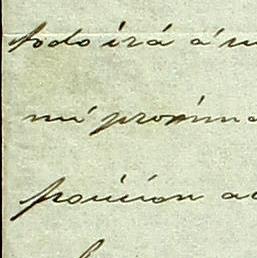 todo irá á
mi proxim
posicion a